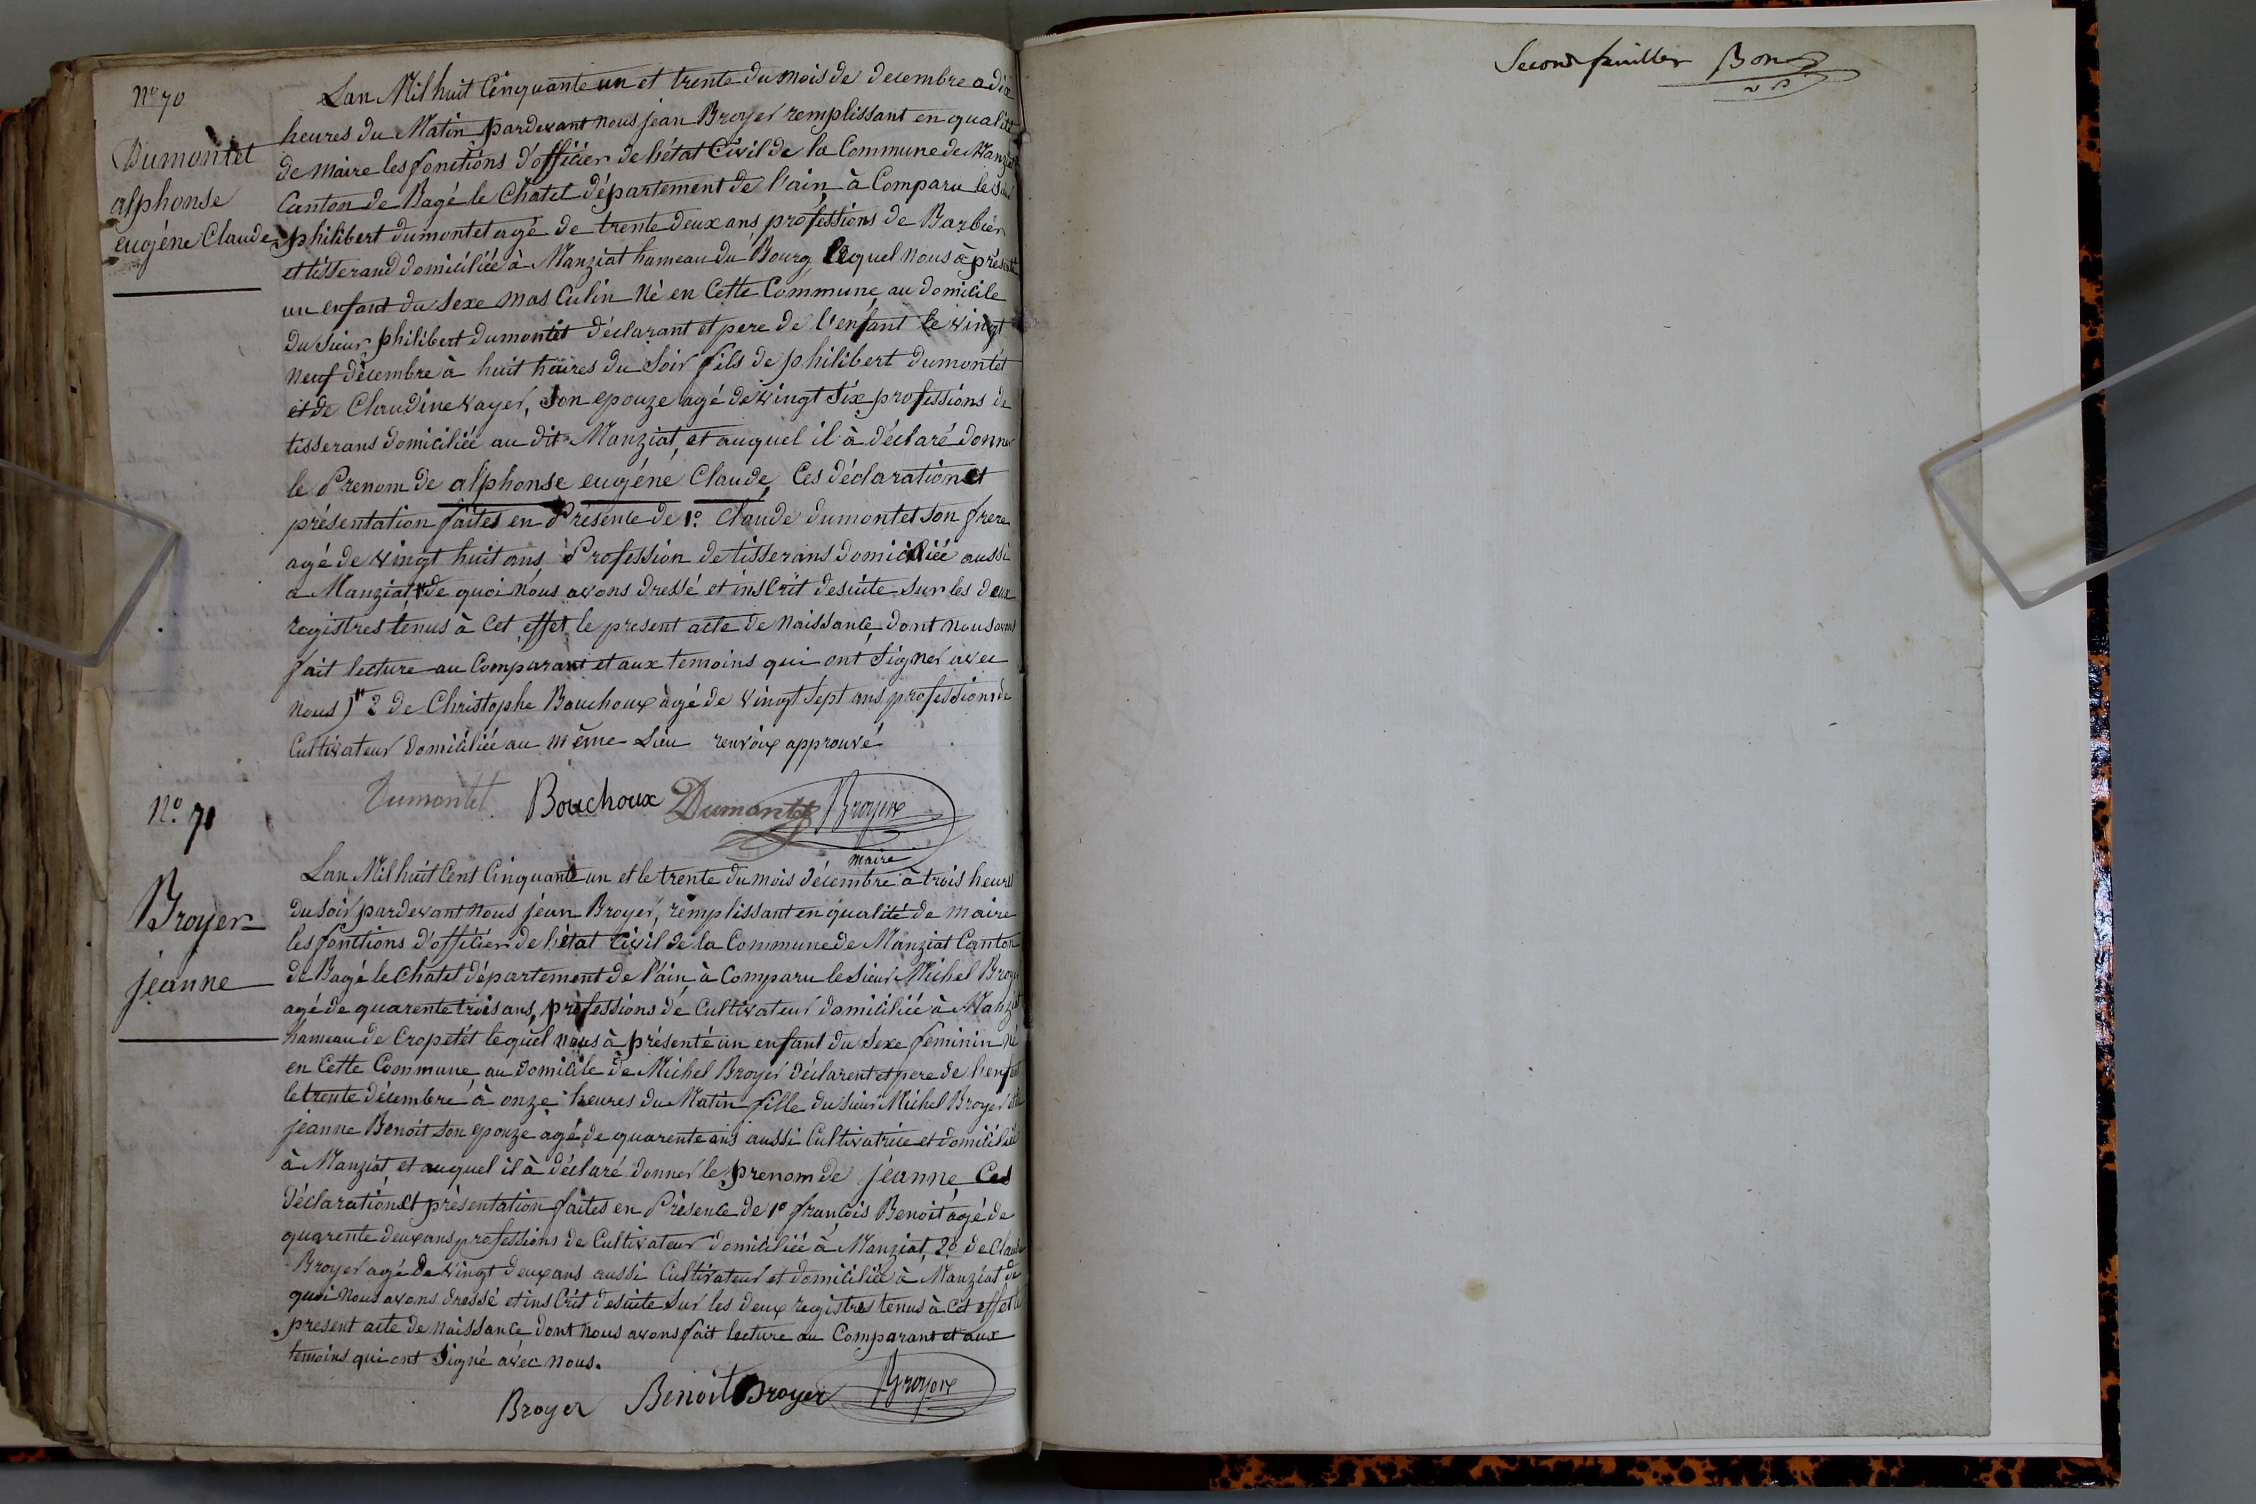 N° 70
Dumontet
alphonse
eugéne Claude
Lan Mil huit Cinquante un et trente du mois de decembre a dix
heures du Matin pardevant nous jean Broyer remplissant en qualité
de maire les fonctions d'officier de l'état Civil de la Commune de Manziat
Canton de Bagé le Chatel département de l'ain, à Comparu le Sieur
philibert dumontet agé de trente deux ans, professions de Barbier
et tisserand domiciliée à Manziat hameau du Bourg, lequel nous à présenté
un enfant du sexe masculin né en Cette Commune, au domicile
du sieur philibert dumontet déclarant et pere de l'enfant le vingt
neuf décembre à huit heures du soir fils de philibert dumontet
et de Claudine vayer, son epouze agé de vingt six professions de
tisserans domiciliée au dit Manziat, et auquel il à déclaré donner
le Prenom de alphonse eugéne Claude, Ces déclaration et
présentation faites en Présence de 1° Claude dumontet son frere
agé de vingt huit ans, Profession de tisserans domiciliée aussi
a Manziat, de quoi nous avons dressé et inscrit desuite sur les deux
registres tenus à Cet effet, le present acte de naissance, dont nous avons
fait lecture au Comparant et aux temoins qui ont signer avec
nous )" 2 de Christophe Bouchoux agé de vingt sept ans, professions de
Cultivateur domiciliée au même Lieu renvoix approuvé
Dumontet Bouchoux Dumontet Broyer
maire
N° 71
Broyer
jeanne
Lan Mil huit Cent Cinquante un et le trente du mois décembre à trois heures
du soir pardevant nous jean Broyer, remplissant en qualité de maire
les fonctions d'officier de l'état Civil de la Commune de Manziat Canton
de Bagé le Chatel département de l'ain, à Comparu le sieur Michel Broyer
agé de quarente trois ans, professions de Cultivateur domiciliée à Manziat
hameau de Cropetét lequel nous à présenté un enfant du sexe féminin né
en Cette Commune, au domicile de Michel Broyer déclarent et pere de l'enfant
le trente décembre à onze heures du Matin fille du sieur Michel Broyer et de
jeanne Benoit son epouze agé de quarente ans aussi Cultivatrice et domiciliée
à Manziat et auquel il à déclaré donner le prenom de jeanne Ces
déclaration et présentation faites en Présence de 1° françois Benoit agé de
quarente deux ans professions de Cultivateur domiciliée à Manziat, 2° de Claude
Broyer agé de vingt deux ans aussi Cultivateur et domiciliée à Manziat de
quoi nous avons dressé et inscrit desuite sur les deux registres tenus à Cet effet le
present acte de naissance dont nous avons fait lecture au Comparant et aux
temoins qui ont signé avec nous.
Broyer Benoit Broyer Broyer
Second feuillet Bon